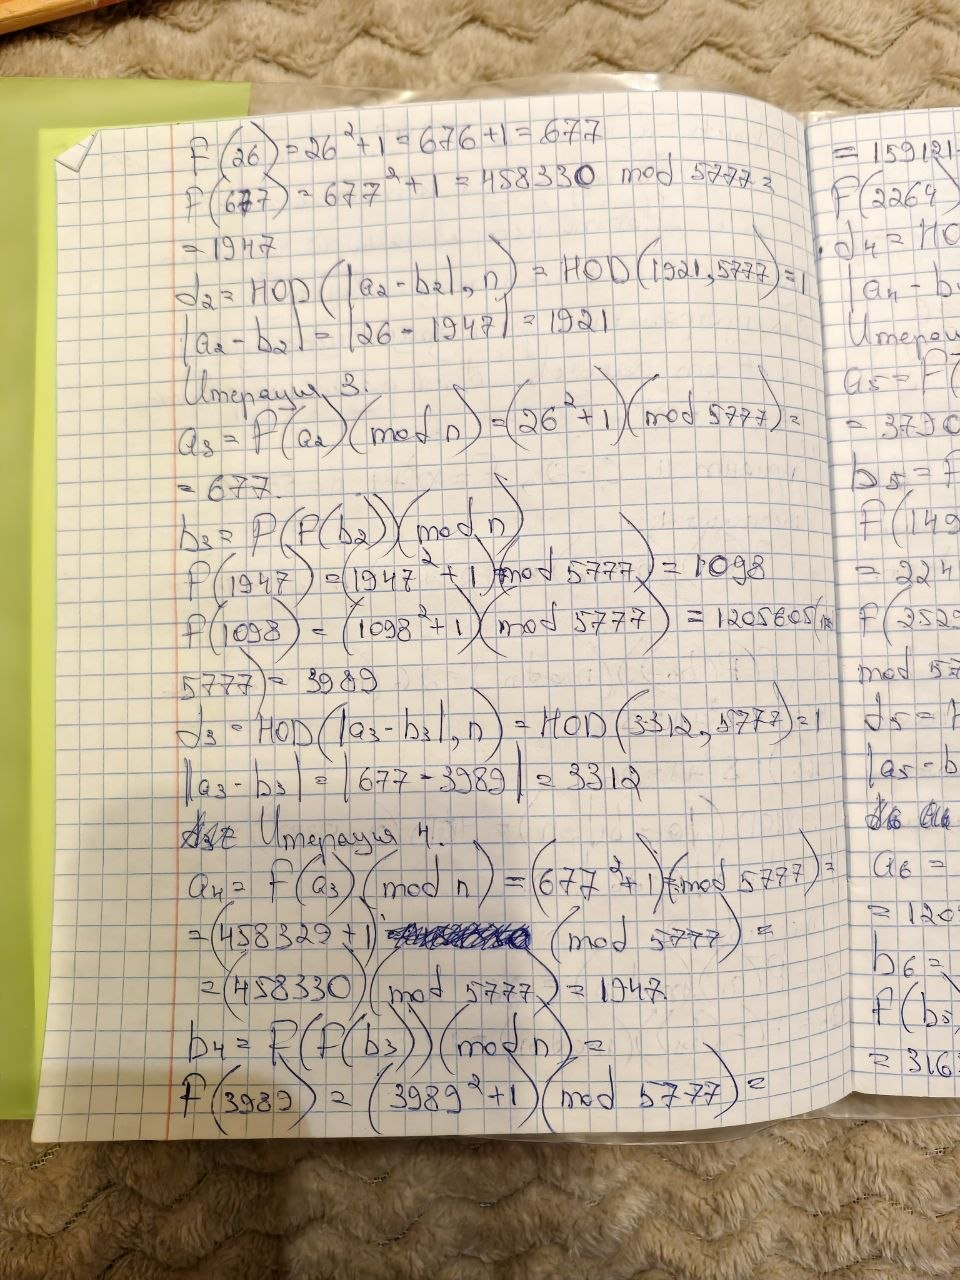 f(26) = 26² + 1 = 676 + 1 = 677
f(677) = 677² + 1 = 458330 mod 5777 =
= 1947
d₂ = НОD(|a₂ - b₂|, n) = НОD(1921, 5777) = 1
|a₂ - b₂| = |26 - 1947| = 1921
Итерация 3.
a₃ = f(a₂)(mod n) = (26² + 1)(mod 5777) =
= 677.
b₃ = f(f(b₂))(mod n)
f(1947) = (1947² + 1)(mod 5777) = 1098
f(1098) = (1098² + 1)(mod 5777) = 1205605(
5777) = 3989
d₃ = НОD(|a₃ - b₃|, n) = НОD(3312, 5777) = 1
|a₃ - b₃| = |677 - 3989| = 3312
Итерация 4.
a₄ = f(a₃)(mod n) = (677² + 1)(mod 5777) =
= (458329 + 1) (mod 5777) =
= (458330)(mod 5777) = 1947.
b₄ = f(f(b₃))(mod n) =
f(3989) = (3989² + 1)(mod 5777) =
= 159121
f(2264)
d₄ = НО
|a₄ - b
Итерац
a₅ = f(
= 3790
b₅ = f
f(149
= 224
f(2529
mod 57
d₅ =
|a₅ - b
a₆ =
= 120
b₆ =
f(b₅
= 316